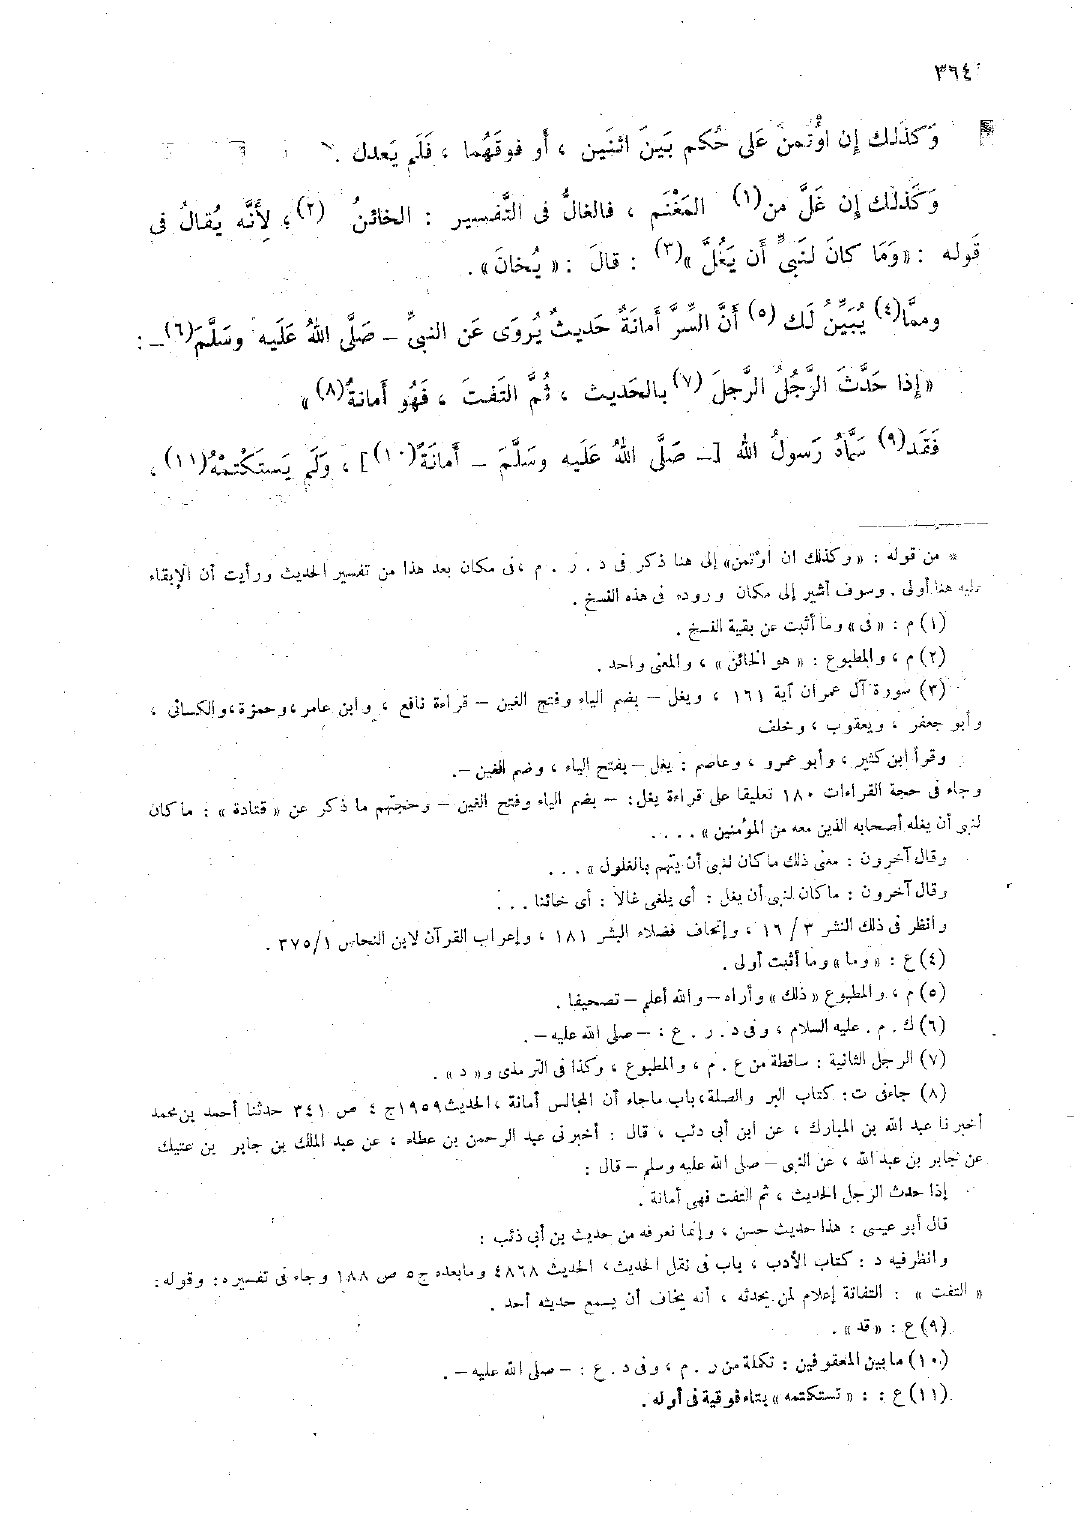 ٣٦٤
وَكَذَلك إن اؤُتُمنَ عَلى حُكم بَينَ اثنَين ، أَو فوقَهُما ، فَلَم يَعدل .
وَكَذلك إن غَلَّ من(١) المَغْنَم ، فالغالُّ فى التَّفسير : الخائنُ (٢)، لِأَنَّه يُقالُ فى
قَوله : «وَمَا كانَ لنَبىٍّ أَن يَغُلَّ»(٣) : قالَ : « يُخانَ» .
وممَّا(٤) يُبَيِّنُ لَك (٥) أَنَّ السِّرَّ أَمانَةٌ حَديثٌ يُروَى عَن النبىِّ – صَلَّى اللهُ عَلَيه وسَلَّمَ(٦)– :
«إذا حَدَّثَ الرَّجُلُ الرَّجلَ (٧) بالحَديث ، ثُمَّ التَفتَ ، فَهُو أَمانةٌ(٨)»
فَقَد(٩) سَمَّاهُ رَسولُ الله [– صَلَّى اللهُ عَلَيه وسَلَّمَ – أَمانَةً(١٠)] ، وَلَم يَستَكْتمْهُ(١١) ،
* من قوله : «وكذلك ان أوتمن» إلى هنا ذكر فى د . ر . م ،فى مكان بعد هذا من تفسير الحديث ورأيت أن الإبقاء
عليه هنا أولى . وسوف أشير إلى مكان وروده فى هذه النسخ .
(١) م : «فى» وما أثبت عن بقية النسخ .
(٢) م ، والمطبوع : « هو الخائن » ، والمعنى واحد .
(٣) سورة آل عمران آية ١٦١ ، ويغل – بضم الياء وفتح الغين – قراءة نافع ، وابن عامر ،وحمزة ،والكسائى ،
وأبو جعفر ، ويعقوب ، وخلف
وقرأ ابن كثير ، وأبو عمرو ، وعاصم : يغل – بفتح الياء ، وضم الغين –.
وجاء فى حجة القراءات ١٨٠ تعليقا على قراءة يغل: – بضم الياء وفتح الغين – وحجتهم ما ذكر عن « قتادة » : ما كان
لنبى أن يغله أصحابه الذين معه من المؤمنين » . . . .
وقال آخرون : معنى ذلك ما كان لنبى أن يتهم بالغلول » . . .
وقال آخرون : ما كان لنبى أن يغل : أى يلفى غالا : أى خائنا . . .
وانظر فى ذلك النشر ٣ / ١٦ ، وإتحاف فضلاء البشر ١٨١ ، وإعراب القرآن لابن النحاس ٣٧٥/١ .
(٤) ع : «وما» وما أثبت أولى .
(٥) م ، والمطبوع «ذلك» وأراه – والله أعلم – تصحيفا .
(٦) ك . م . عليه السلام ، وفى د . ر . ع : – صلى الله عليه –.
(٧) الرجل الثانية : ساقطة من ع . م ، والمطبوع ، وكذا فى الترمذى و« د » .
(٨) جاء فى ت : كتاب البر والصلة ،باب ماجاء أن المجالس أمانة ،الحديث ١٩٥٩ ج ٤ ص ٣٤١ حدثنا أحمد بن محمد
أخبرنا عبد الله بن المبارك ، عن ابن أبى ذئب ، قال : أخبرنى عبد الرحمن بن عطاء ، عن عبد الملك بن جابر بن عتيك
عن جابر بن عبد الله ، عن النبى – صلى الله عليه وسلم – قال :
إذا حدث الرجل الحديث ، ثم التفت فهى أمانة .
قال أبو عيسى : هذا حديث حسن ، وإنما نعرفه من حديث بن أبى ذئب :
وانظر فيه د : كتاب الأدب ، باب فى نقل الحديث، الحديث ٤٨٦٨ ومابعده ج ٥ ص ١٨٨ وجاء فى تفسيره: وقوله:
« التفت » : التفاتة إعلام لمن يحدثه ، أنه يخاف أن يسمع حديثه أحد .
(٩) ع : «قد» .
(١٠) ما بين المعقوفين : تكملة من ر . م ، وفى د . ع : – صلى الله عليه –.
(١١) ع : : « تستكتمه » بتاء فوقية فى أوله .